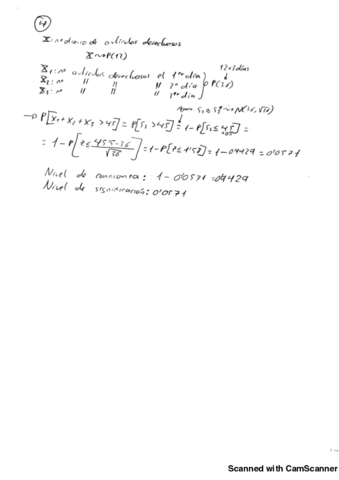 4
X: nº diario de artículos defectuosos
X~P(12)
X₁: nº artículos defectuosos el 1er día
X₂: nº " " " 2º día
X₃: nº " " " 3er día
12·3 días
P(36)
Aprox. S₃ ≈ S₃* ~ N(36, √36)
→ P[X₁ + X₂ + X₃ > 45] = P[S₃ > 45] = 1 - P[S₃ ≤ 45] =
+0'5
= 1 - P[Z ≤ (45'5 - 36)/√36] = 1 - P[Z ≤ 1'58] = 1 - 0'9429 = 0'0571
Nivel de confianza: 1 - 0'0571 = 0'9429
Nivel de significación: 0'0571
Scanned with CamScanner